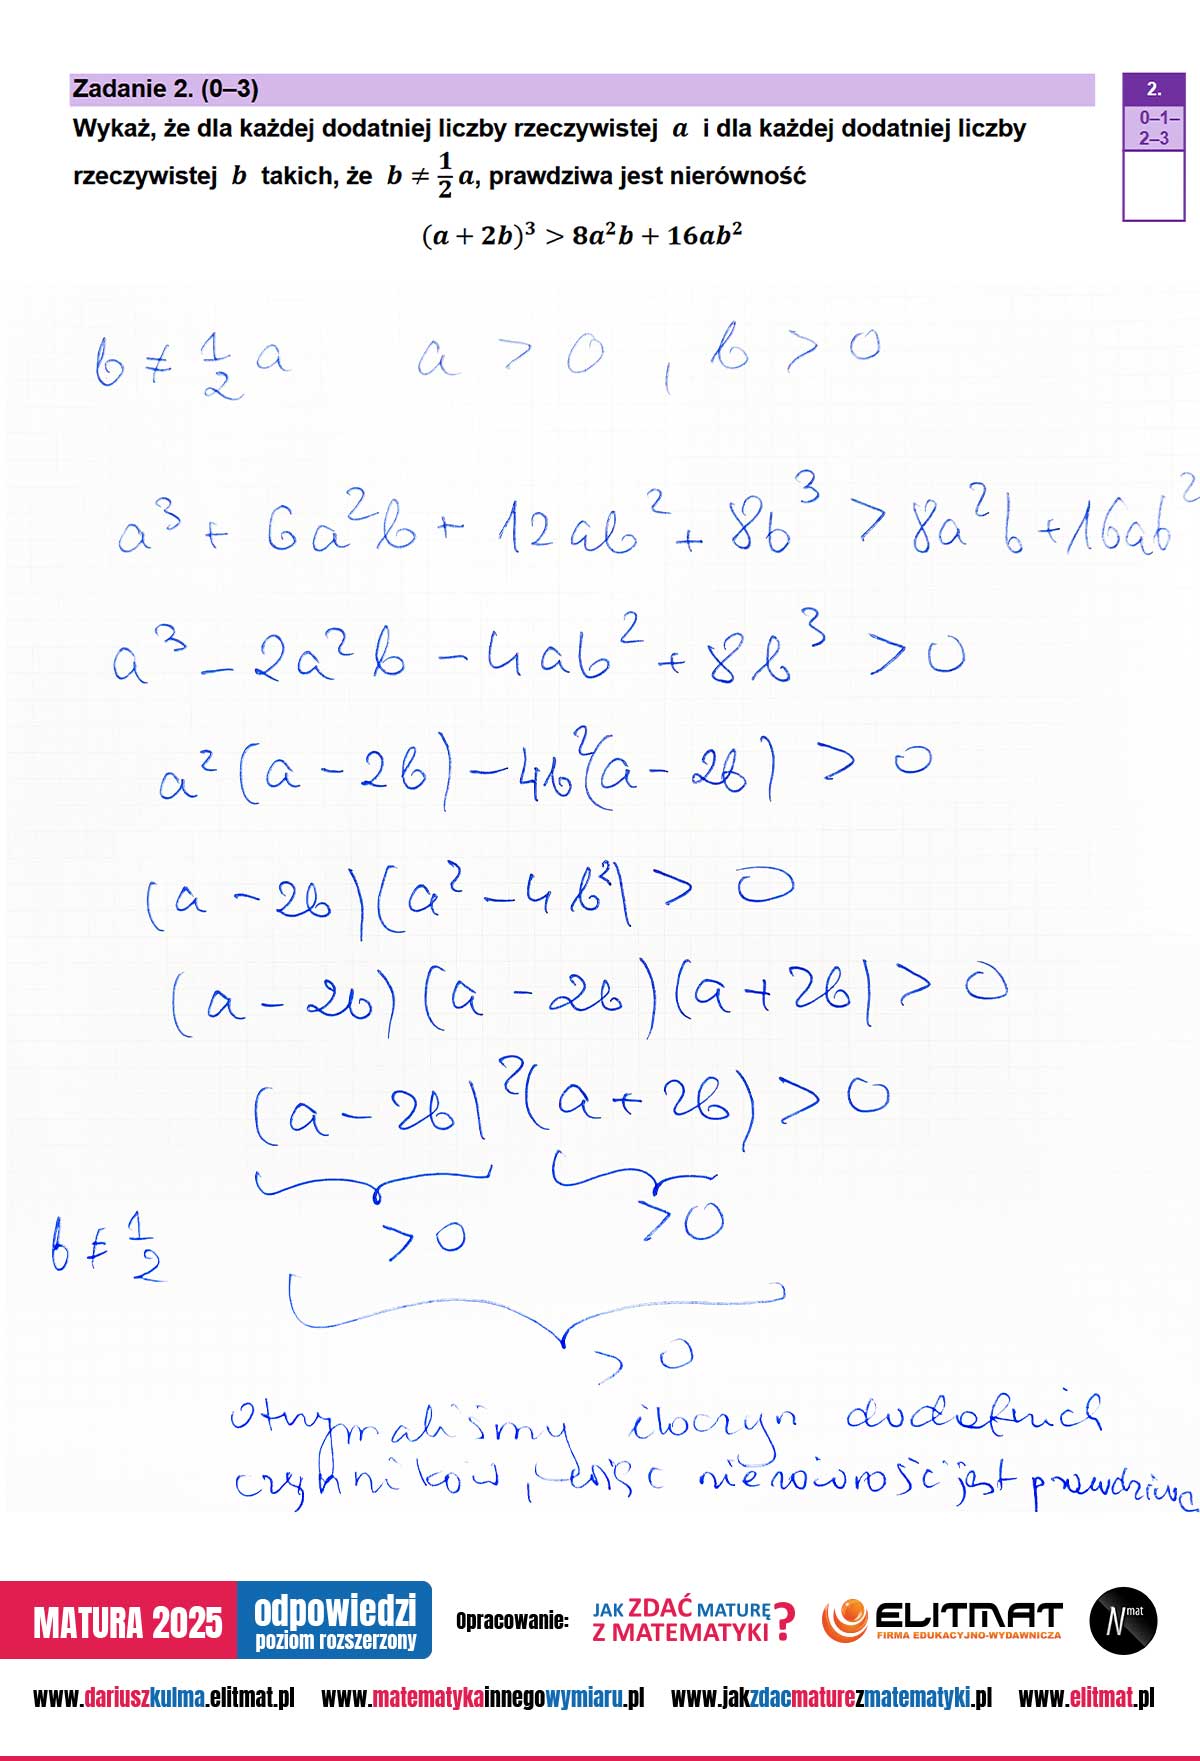 Zadanie 2. (0–3)
2.
0–1–
2–3
Wykaż, że dla każdej dodatniej liczby rzeczywistej a i dla każdej dodatniej liczby
rzeczywistej b takich, że b ≠ 1/2 a, prawdziwa jest nierówność
(a + 2b)³ > 8a²b + 16ab²
b ≠ 1/2 a a > 0 , b > 0
a³ + 6a²b + 12ab² + 8b³ > 8a²b + 16ab²
a³ – 2a²b – 4ab² + 8b³ > 0
a² (a – 2b) – 4b² (a – 2b) > 0
(a – 2b) (a² – 4b²) > 0
(a – 2b) (a – 2b) (a + 2b) > 0
(a – 2b)² (a + 2b) > 0
b ≠ 1/2 > 0 > 0
> 0
otrzymaliśmy iloczyn dodatnich
czynników, więc nierówność jest prawdziwa
MATURA 2025 odpowiedzi
poziom rozszerzony
Opracowanie:
JAK ZDAĆ MATURĘ
Z MATEMATYKI ?
ELITMAT
FIRMA EDUKACYJNO-WYDAWNICZA
Nmat
www.dariuszkulma.elitmat.pl www.matematykainnegowymiaru.pl www.jakzdacmaturezmatematyki.pl www.elitmat.pl